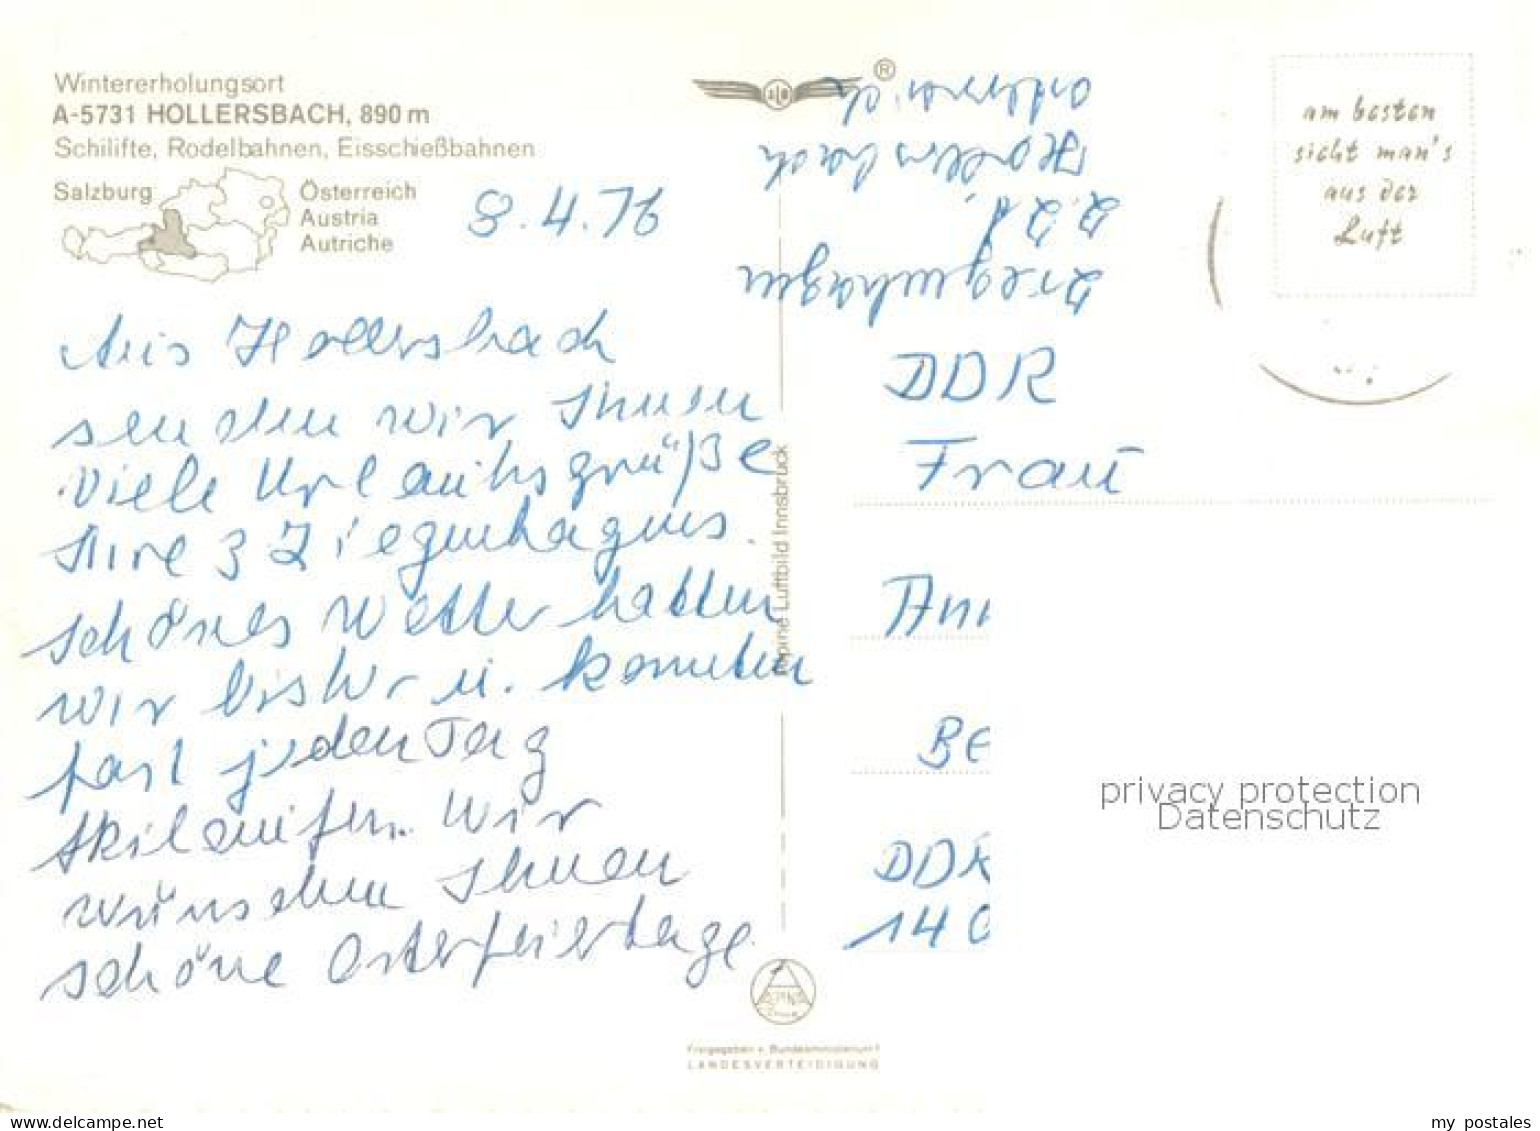 Wintererholungsort
A-5731 HOLLERSBACH, 890 m
Schilifte, Rodelbahnen, Eisschießbahnen
Salzburg
Österreich
Austria
Autriche
8.4.76
Aus Hollersbach
senden wir Ihnen
viele Urlaubsgrüße
Ihre 3 Ziegenhagens.
schönes Wetter hatten
wir bisher u. konnten
fast jeden Tag
skilaufen. Wir
wünschen Ihnen
schöne Osterfeiertage
Alpine Luftbild Innsbruck
®
Ziegenhagen
z. Zt.
Hollersbach
Österreich
am besten
sieht man's
aus der
Luft
DDR
Frau
Ann
BE
DDR
14
privacy protection
Datenschutz
Freigegeben v. Bundesministerium f.
LANDESVERTEIDIGUNG
www.delcampe.net
my postales